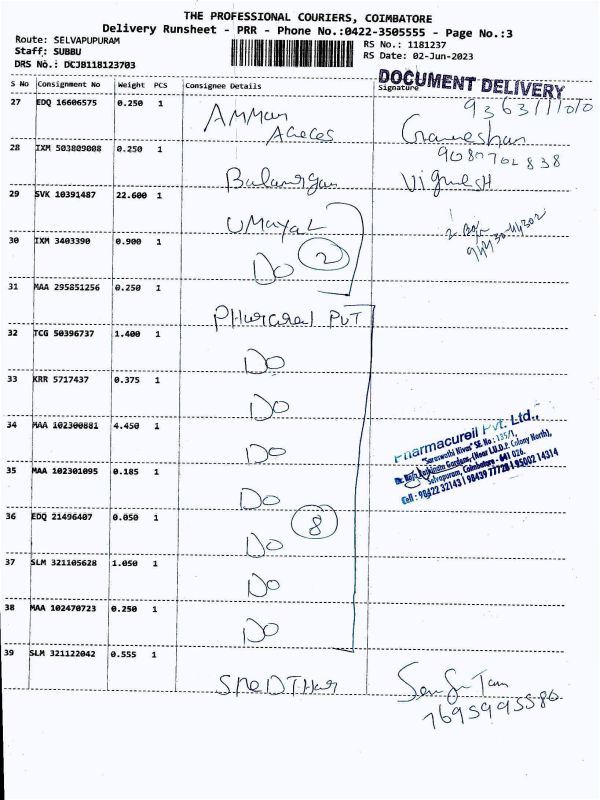 THE PROFESSIONAL COURIERS, COIMBATORE
Delivery Runsheet - PRR - Phone No.:0422-3505555 - Page No.:3
Route: SELVAPUPURAM
Staff: SUBBU
DRS No.: DCJB118123703
RS No.: 1181237
RS Date: 02-Jun-2023
DOCUMENT DELIVERY
S No Consignment No Weight PCS Consignee Details Signature
27 EDQ 16606575 0.250 1
Amman
9363111010
28 IXM 503809008 0.250 1
Balamrgan
9080702838
Vignesh
29 SVK 10391487 22.600 1
UMayaL
30 IXM 3403390 0.900 1
Do
2
94430-44302
31 MAA 295851256 0.250 1
PVT
32 TCG 50396737 1.400 1
Do
33 KRR 5717437 0.375 1
Do
34 MAA 102300881 4.450 1
Do
35 MAA 102301095 0.185 1
Do
Pharmacureil Pvt. Ltd.,
"Saraswathi Nivas" SF. No : 135/1,
Selvapuram, Coimbatore - 641 026.
Cell : 98422 32143 | 98439 77728 | 95002 14314
36 EDQ 21496407 0.050 1
Do
8
37 SLM 321105628 1.050 1
Do
38 MAA 102470723 0.250 1
Do
39 SLM 321122042 0.555 1
7695995580